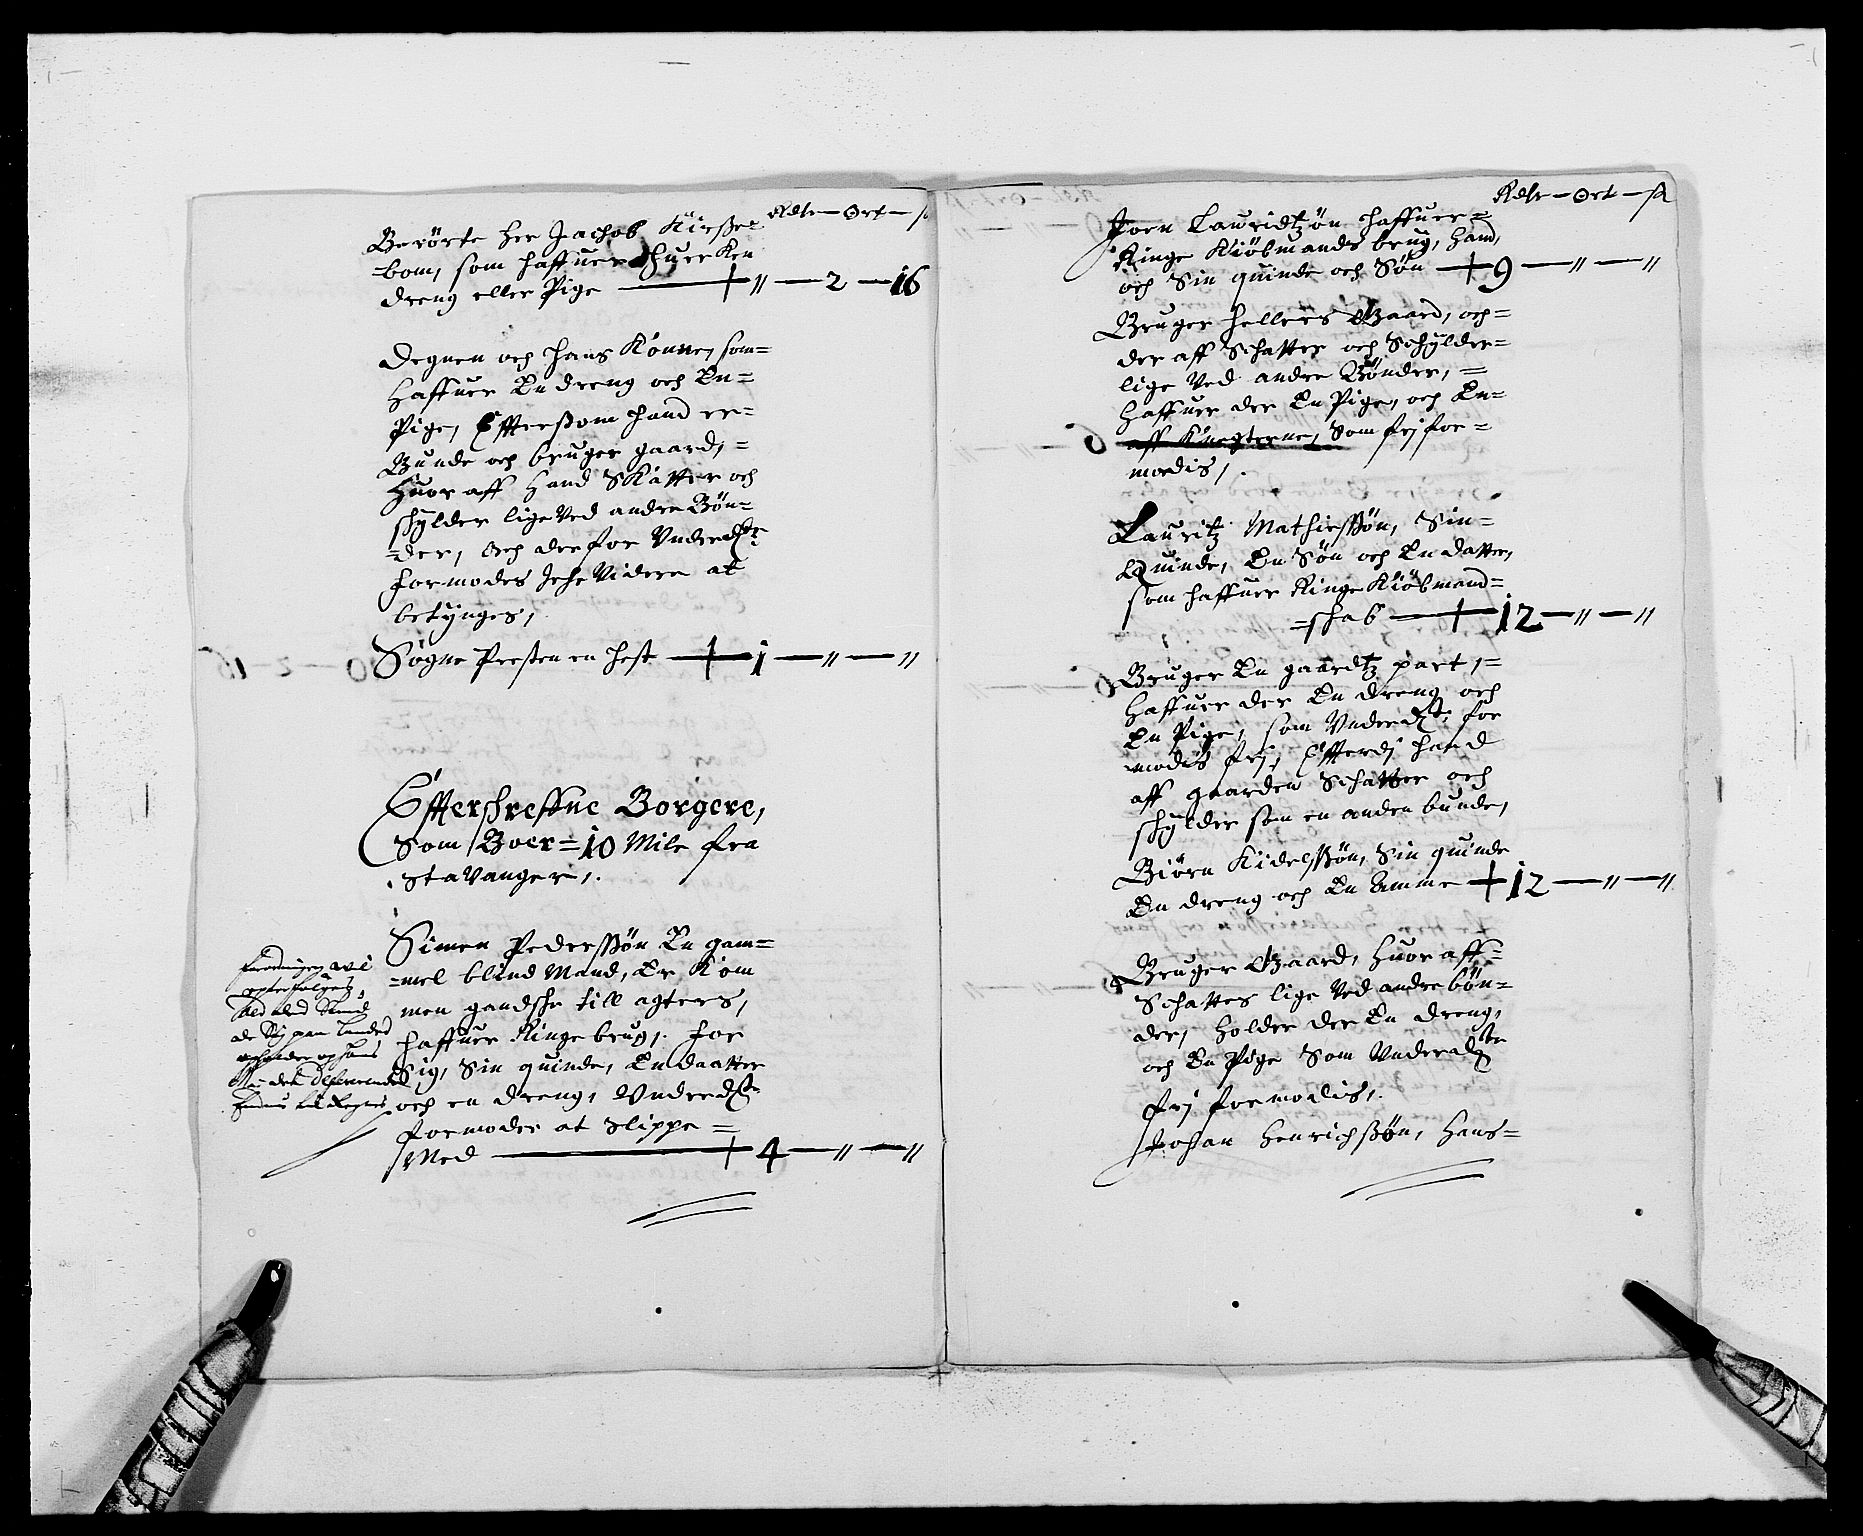 Rdlr — Ort — ß
Berörte Her Jachob Kirße-
=bom, som haffuer huercken
dreng eller Pige — + „ — 2 — 16
Degnen och hans Konne, som=
Haffuer En dreng och En=
Pige, Effterßom hand er=
Bunde och bruger gaard,=
Huor aff Hand Skatter och
skylder lige Ved andre Bön=
=der, och derfor Vnderdste
formodes Iche Videre at
betynges,
Sogne Presten en hest — + 1 — „ — „
Effterschreffne Borgere,
Som Boer = 10 Mile fra
Stavanger,.
Simen Pederssøn En gam=
=mel blind Mand, Er Kom
men gandsche till agters,
haffuer Ringe brug, for
Sig, Sin quinde, En daatter
och en dreng, Vnderdste
formoder at Slippe =
Med — + 4 — „ — „
Rdlr — Ort — ß
Joen Lauridtzøn haffuer=
Ringe Kiöbmands brug, hand,
och Sin quinde och Søn — + 9 — „ — „
Bruger hellers Gaard, och=
der aff Schatter och Schylder=
lige Ved andre Bønder, =
haffuer der En Pige, och En=
aff Knegterne, Som frj for=
modis,.
Lauritz Mathiessøn, Sin=
Quinde, En Søn och En datter,
som haffuer Ringe Kiöbmand=
=skab — + 12 — „ — „
Bruger En gaardtz part,=
haffuer der En dreng och
En Pige, som Vnderdst: for
modis frj, Efferdj hand
aff gaarden Schatter och
skylder som en anden bunde,
Biörn Kidelssøn, Sin quinde
En dreng och En Amme — + 12 — „ — „
Bruger Gaard, Huor aff=
Schattes lige Ved andre bön=
der, Holder der En dreng,
och En Pige Som Vnderdste
frj formodis,.
Johan Henrichssøn, Hans=